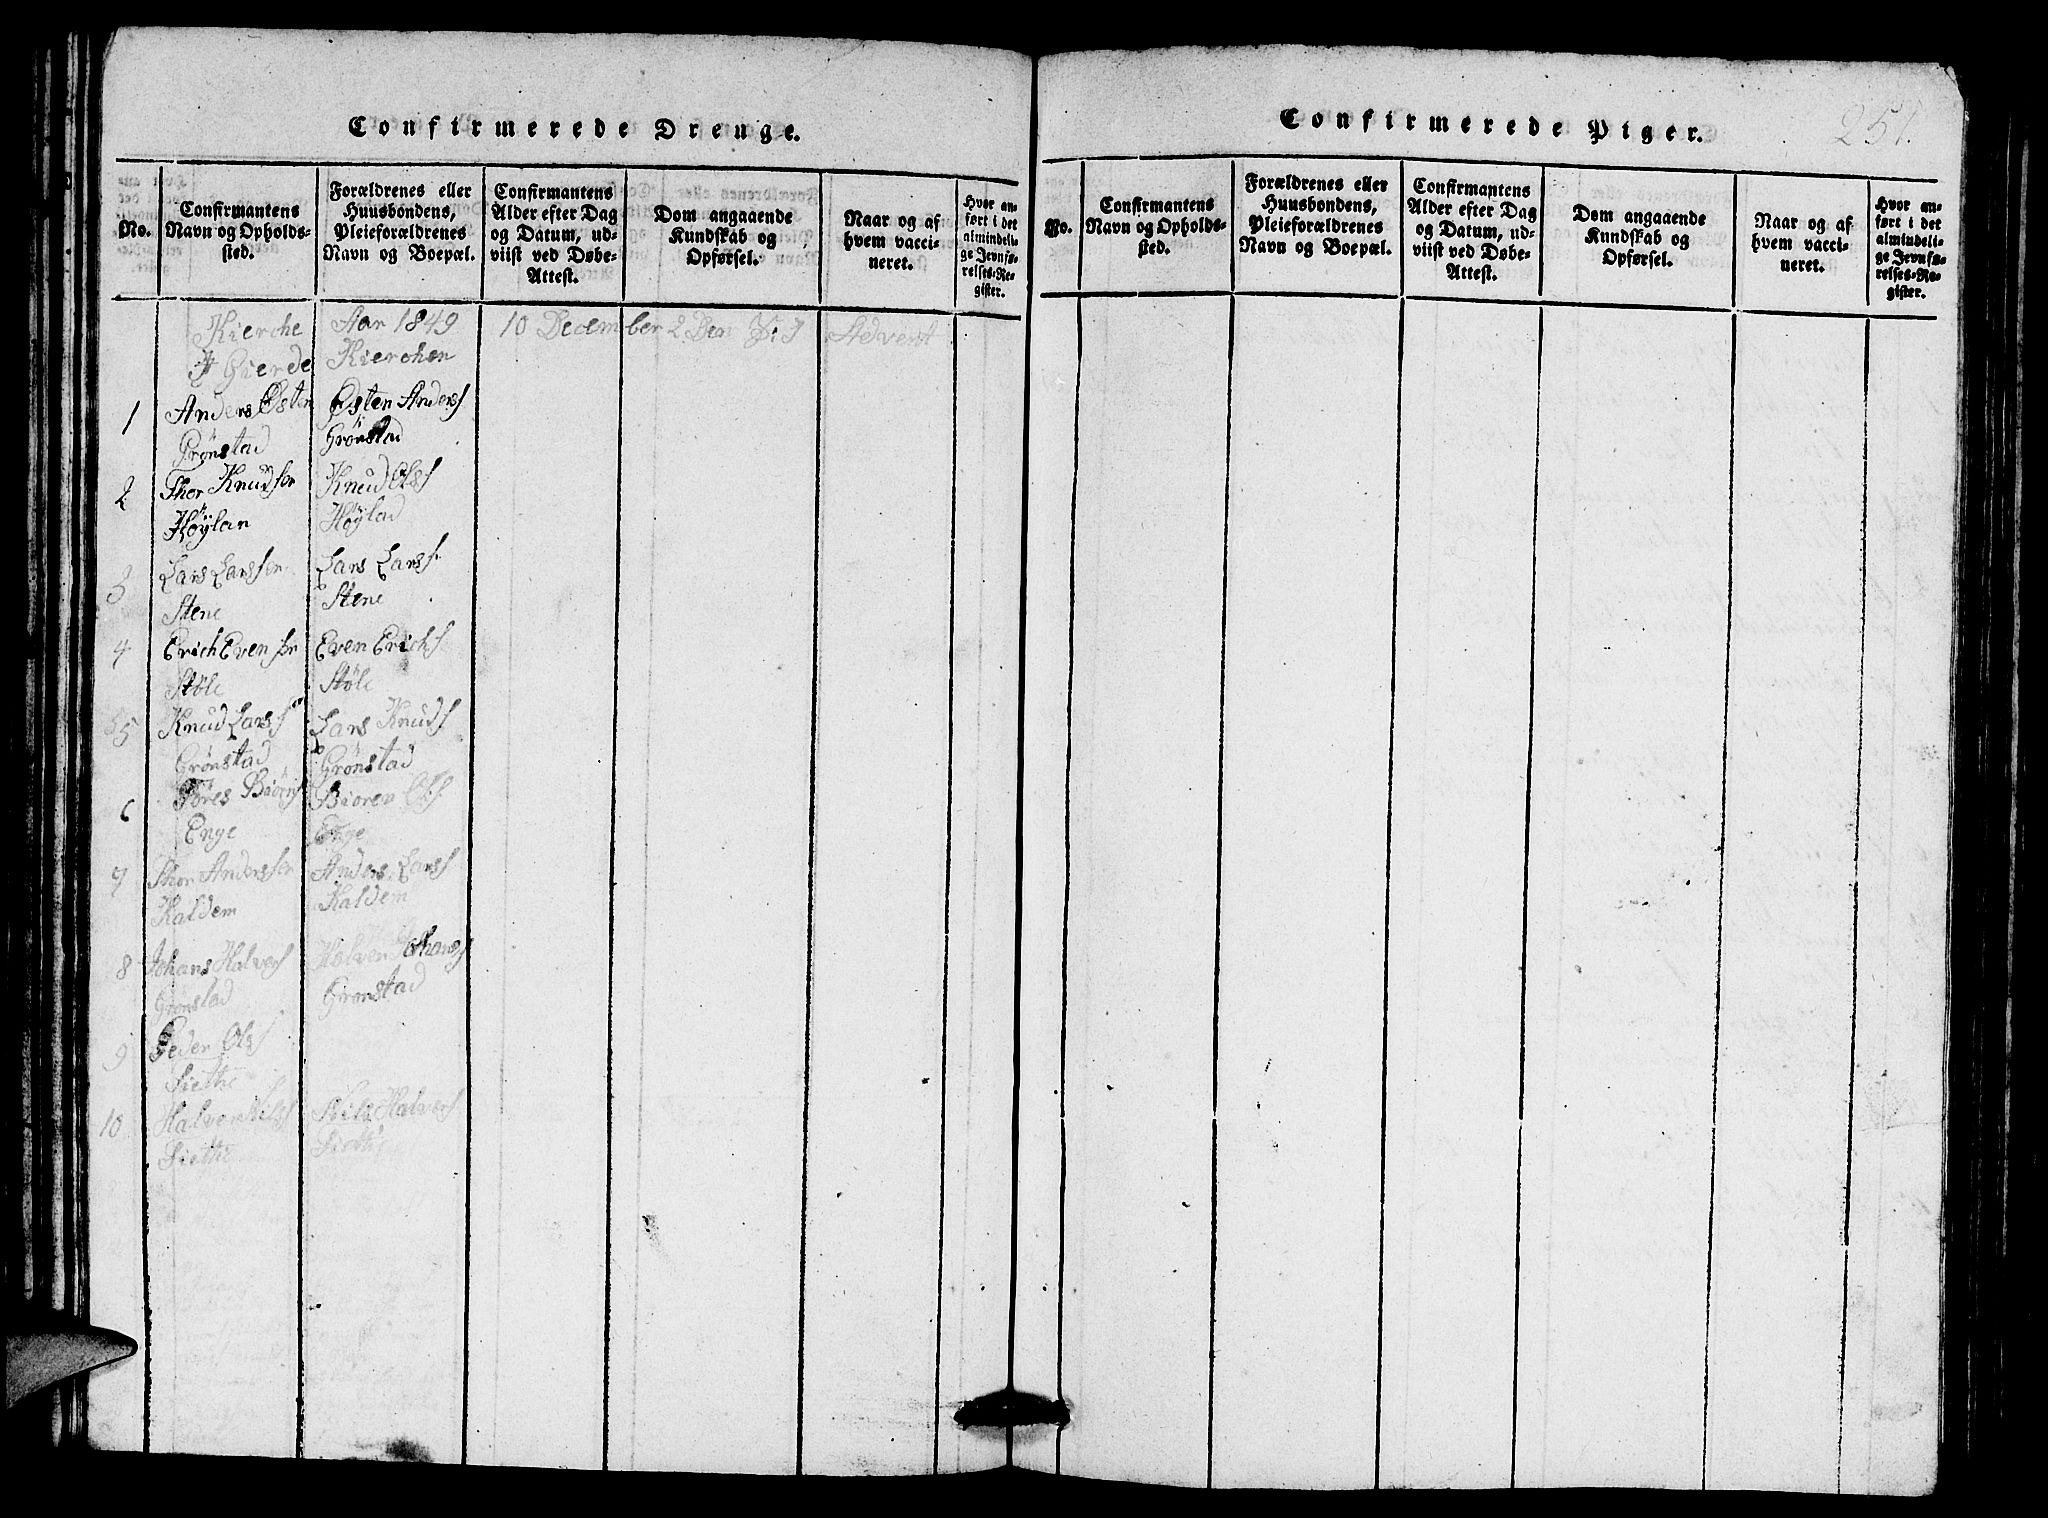 Confirmerede Drenge.
No.
Confirmantens Navn og Opholds-sted.
Forældrenes eller Huusbondens, Pleieforældrenes Navn og Boepæl.
Confirmantens Alder efter Dag og Datum, ud-viist ved Døbe-Attest.
Dom angaaende Kundskab og Opførsel.
Naar og af hvem vacci-neret.
Hvor an-ført i det almindeli-ge Jevnfø-relses-Re-gister.
Kierche Aar 1849 10 December 2 Den S: I Advent
I Gierde Kierchen
1 Anders Østen Østen Anders
Grönstad Grönstad
2 Thor Knudsen Knud Ols
Höylan Höylad
3 Lars Larssen Lars Lars
Stene Stene
4 Erich Even sen Even Erichs
Støle Støle
5 Knud Lars Lars Knuds
Grönstad Grönstad
6 Töres Biörns Bioren Ols
Enge Enge
7 Thor Anderssen Anders Lars
Kaldem Kaldem
8 Johans Halvors Halven Johans
Grönstad Gronstad
9 Peder Ols
Siethe
10 Halvor Nils Nils Halvors
Siethe Siethe
Confirmerede Piger.
251.
No.
Confirmantens Navn og Opholds-sted.
Forældrenes eller Huusbondens, Pleieforældrenes Navn og Boepæl.
Confirmantens Alder efter Dag og Datum, ud-viist ved Døbe-Attest.
Dom angaaende Kundskab og Opførsel.
Naar og af hvem vacci-neret.
Hvor an-ført i det almindeli-ge Jevnfø-relses-Re-gister.